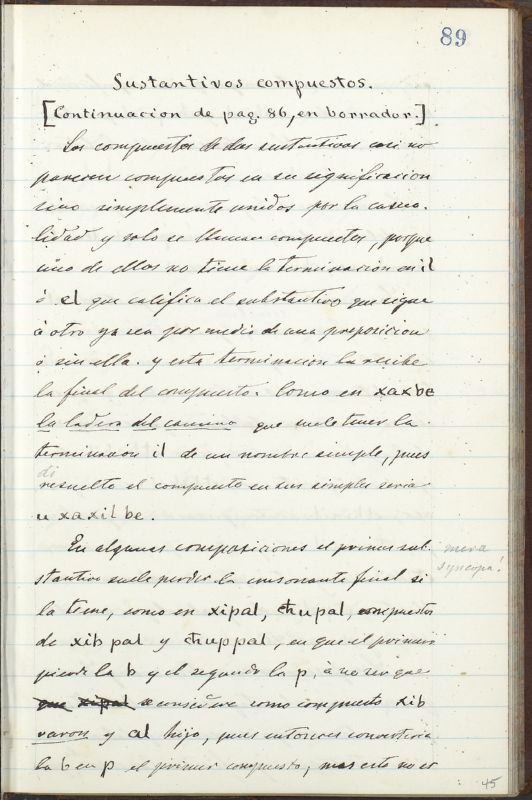 89
Sustantivos compuestos.
[Continuacion de pag. 86, en borrador.]
Los compuestos de dos sustantivos casi no
parecen compuestos en su significacion
sino simplemente unidos por la casua-
lidad y solo se llaman compuestos, porque
uno de ellos no tiene la terminacion en il
ó el que califica el substantivo que sigue
á otro ya sea por medio de una preposicion
ó sin ella. y esta terminacion la recibe
la final del compuesto. Como en xaxbe
la ladera del camino que suele tener la
terminacion il de un nombre simple, pues
di
resuelto el compuesto en sus simples seria
u xaxil be.
En algunas composiciones el primer sub-
stantivo suele perder la consonante final si
la tiene, como en xipal, chupal, compuestos
de xib pal y chuppal, en que el primero
pierde la b y el segundo la p, á no ser que
que xipal se considere como compuesto xib
varon y al hijo, pues entonces convertiria
la b en p el primer compuesto, mas esto no es
mera
syncopa!
45